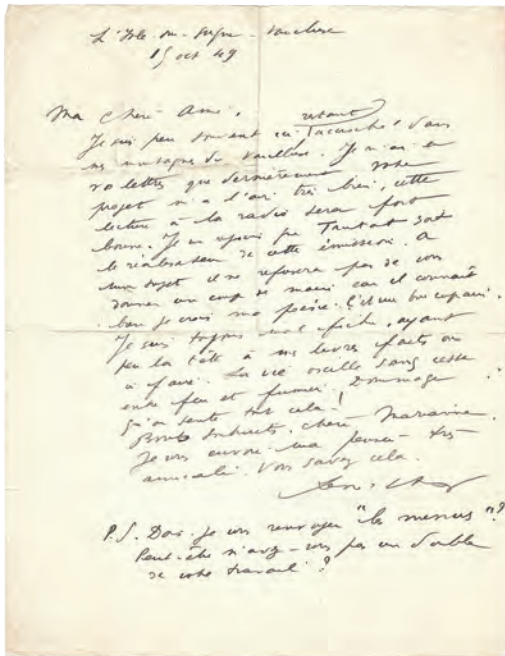 L'Isle-sur-Sorgue - Vaucluse
15 oct 49
Ma chère Amie,
Je suis peu souvent ici, restant dans
mes montagnes du Vaucluse. Je n'ai eu
vos lettres que dernièrement. Votre
projet m'a l'air très bien, cette
lecture à la radio sera fort
bonne. Je me réjouis que Tardat soit
le réalisateur de cette émission. A
mon sujet il ne refusera pas de vous
donner un coup de main car il connaît
bien je crois ma poésie. C'est un bon copain.
Je suis toujours mal fichu, ayant
peu la tête à mes livres faits ou
à faire. La vie oscille sans cesse
entre feu et fumier. Dommage
qu'on sente tout cela !
chère Marianne.
Je vous envoie ma pensée très
amicale. Vous savez cela.
René Char
P.S. Dois-je vous renvoyer "les menus" ?
Peut-être n'avez-vous pas un double
de votre travail ?